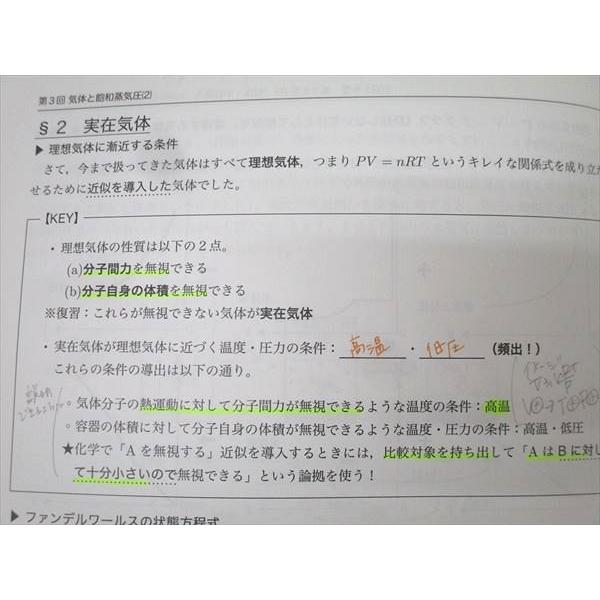 第3回 気体と飽和蒸気圧(2)
§2 実在気体
▶ 理想気体に漸近する条件
さて，今まで扱ってきた気体はすべて理想気体，つまり PV = nRT というキレイな関係式を成り立た
せるために近似を導入した気体でした。
【KEY】
・理想気体の性質は以下の2点。
(a)分子間力を無視できる
(b)分子自身の体積を無視できる
※復習：これらが無視できない気体が実在気体
・実在気体が理想気体に近づく温度・圧力の条件： 高温 ・ 低圧 (頻出！)
これらの条件の導出は以下の通り。
◦ 気体分子の熱運動に対して分子間力が無視できるような温度の条件：高温
◦ 容器の体積に対して分子自身の体積が無視できるような温度・圧力の条件：高温・低圧
★化学で「Aを無視する」近似を導入するときには，比較対象を持ち出して「AはBに対し
て十分小さいので無視できる」という論拠を使う！
▶ ファンデルワールスの状態方程式